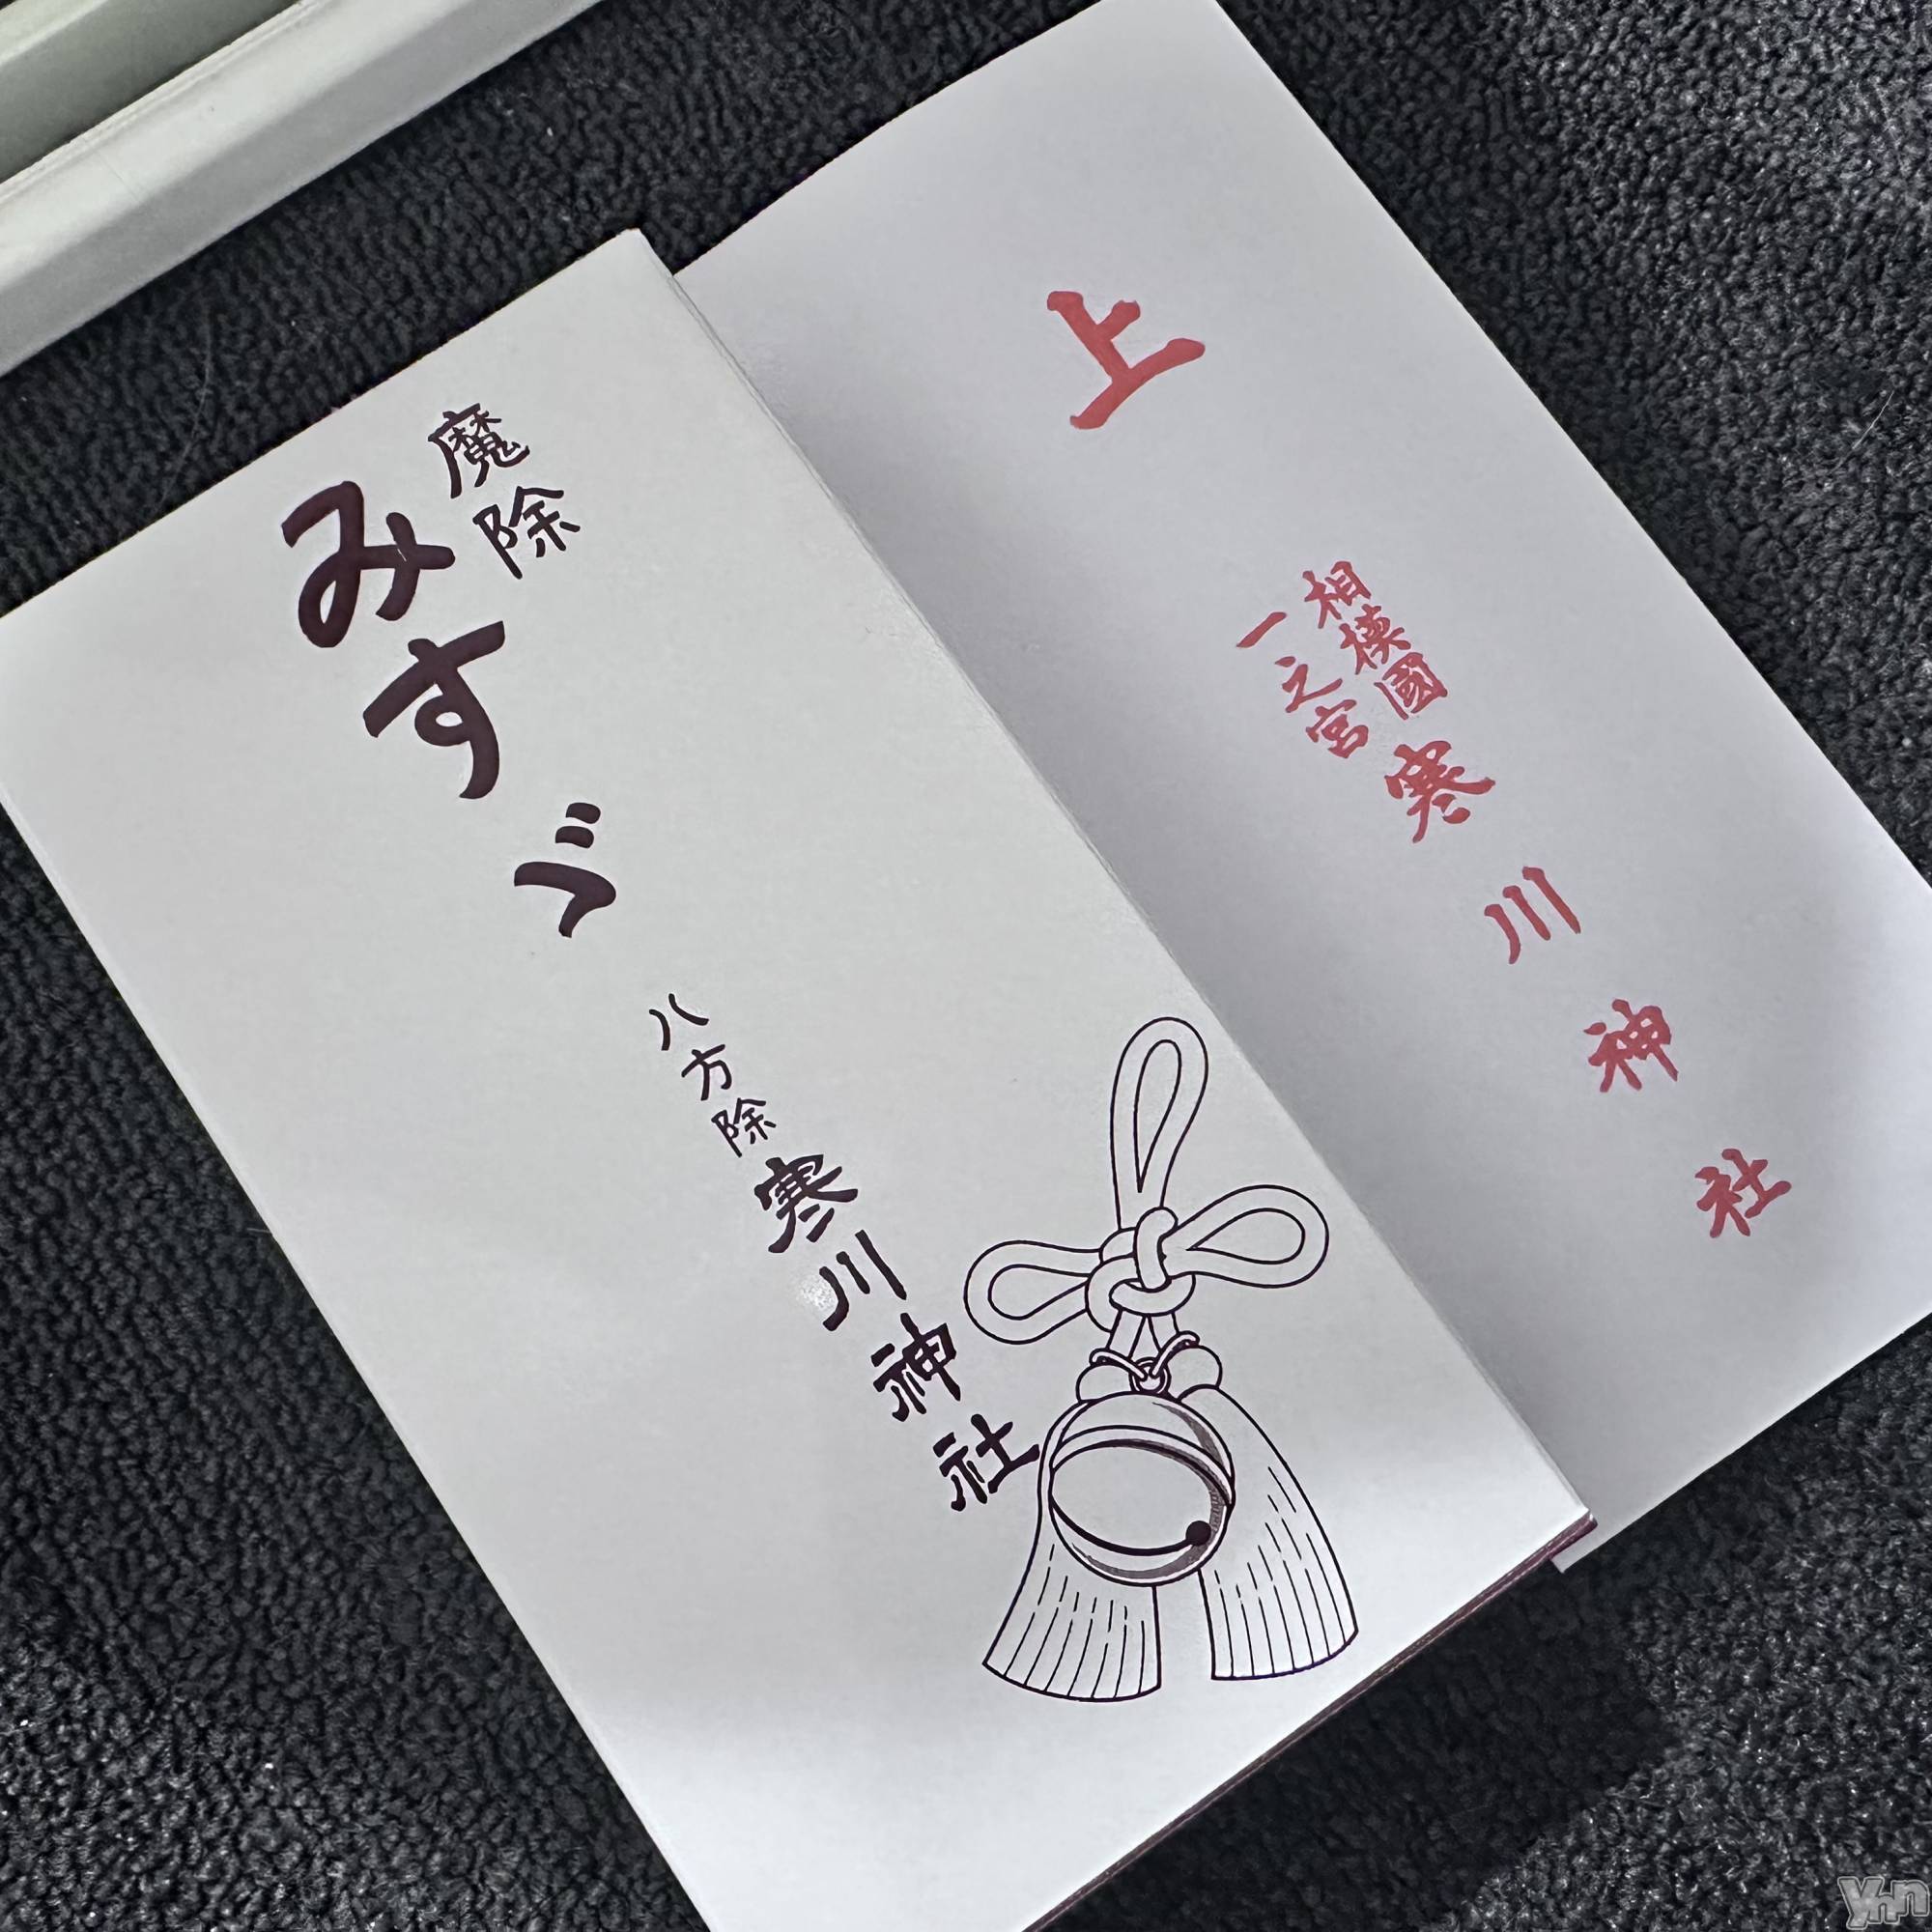 上
相模國
一之宮
寒川神社
魔除
みすゞ
八方除
寒川神社
ynn